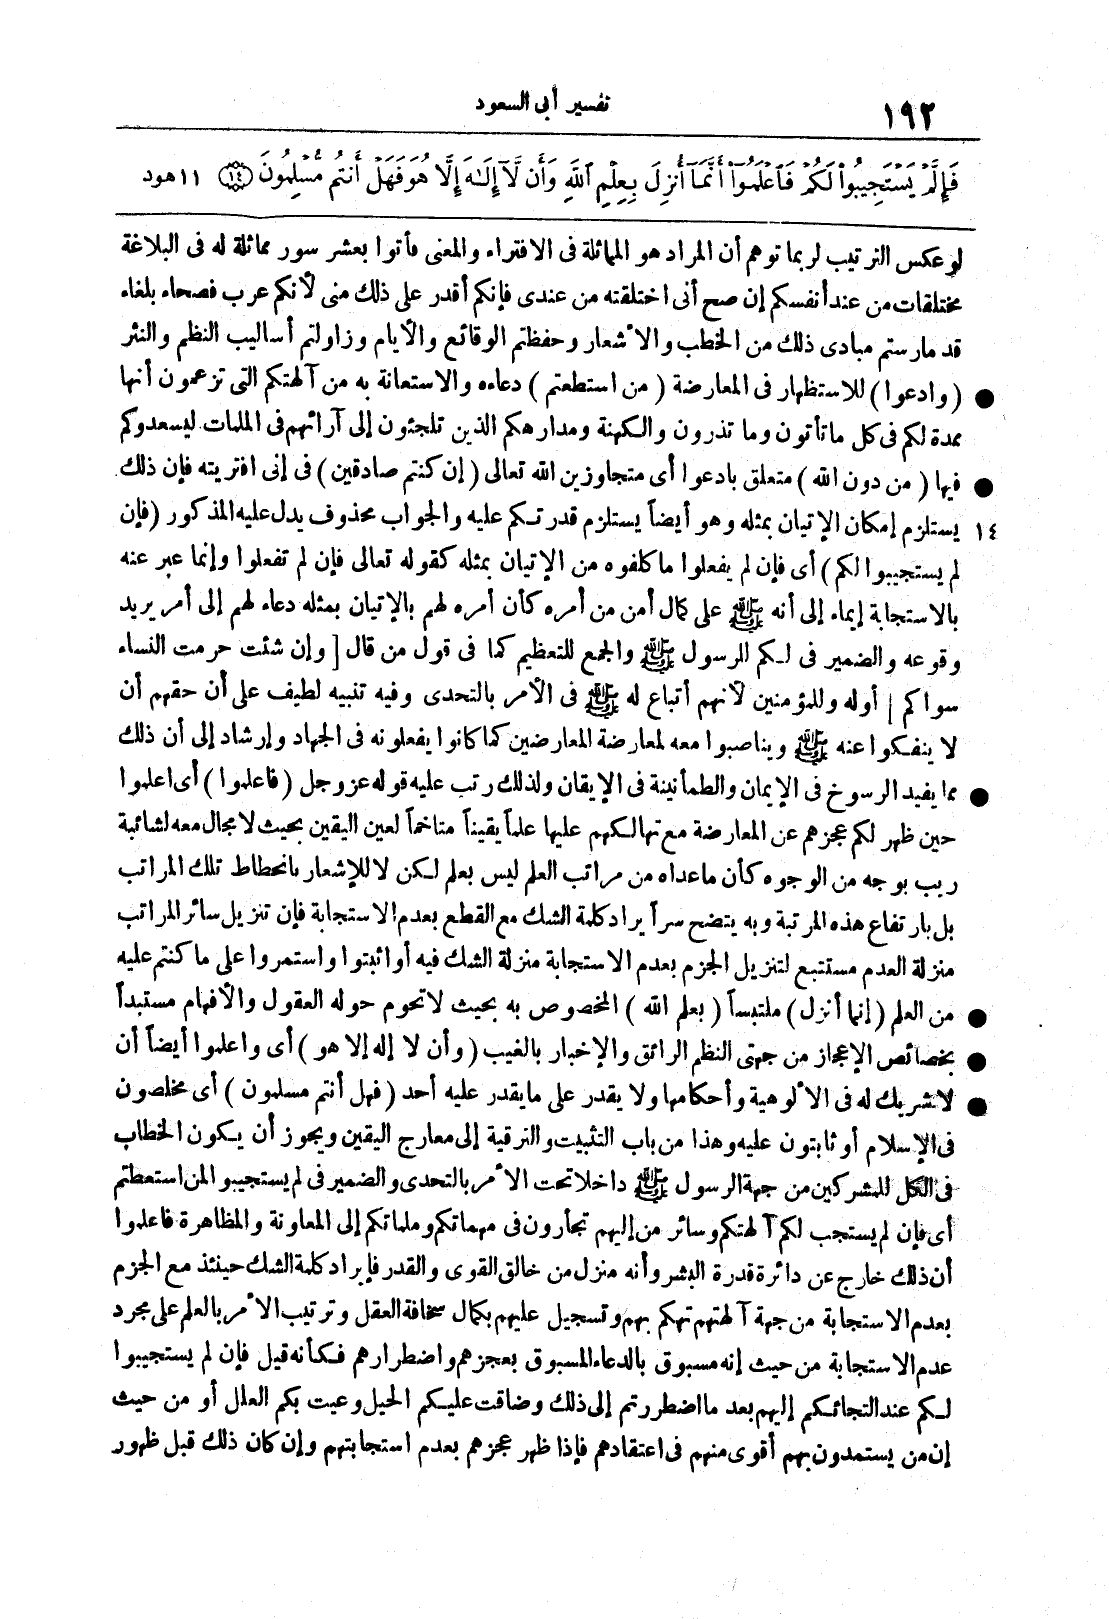 ١٩٢
تفسير أبى السعود
فَإِلَّمْ يَسْتَجِيبُوا۟ لَكُمْ فَٱعْلَمُوٓا۟ أَنَّمَآ أُنزِلَ بِعِلْمِ ٱللَّهِ وَأَن لَّآ إِلَـٰهَ إِلَّا هُوَ فَهَلْ أَنتُم مُّسْلِمُونَ (١٤) ١١ هود
لو عكس الترتيب لربما توهم أن المراد هو المماثلة فى الافتراء والمعنى فأتوا بعشر سور مماثلة له فى البلاغة
مختلقات من عند أنفسكم إن صح أنى اختلقته من عندى فإنكم أقدر على ذلك منى لأنكم عرب فصحاء بلغاء
قد مارستم مبادى ذلك من الخطب والأشعار وحفظتم الوقائع والأيام وزاولتم أساليب النظم والنثر
● (وادعوا) للاستظهار فى المعارضة (من استطعتم) دعاءه والاستعانة به من آلهتكم التى تزعمون أنها
ممدة لكم فى كل ما تأتون وما تذرون والكهنة ومدارهكم الذين تلجئون إلى آرائهم فى الملمات ليسعدوكم
● فيها (من دون الله) متعلق بادعوا أى متجاوزين الله تعالى (إن كنتم صادقين) فى إنى افتريته فإن ذلك
١٤ يستلزم إمكان الإتيان بمثله وهو أيضاً يستلزم قدرتكم عليه والجواب محذوف يدل عليه المذكور (فإن
لم يستجيبوا لكم) أى فإن لم يفعلوا ما كلفوه من الإتيان بمثله كقوله تعالى فإن لم تفعلوا وإنما عبر عنه
بالاستجابة إيماء إلى أنه ﷺ على كمال أمن من أمره كأن أمره لهم بالإتيان بمثله دعاء لهم إلى أمر يريد
وقوعه والضمير فى لكم للرسول ﷺ والجمع للتعظيم كما فى قول من قال [وإن شئت حرمت النساء
سواكم] أوله وللمؤمنين لأنهم أتباع له ﷺ فى الأمر بالتحدى وفيه تنبيه لطيف على أن حقهم أن
لا ينفكوا عنه ﷺ ويناصبوا معه لمعارضة المعارضين كما كانوا يفعلونه فى الجهاد وإرشاد إلى أن ذلك
● مما يفيد الرسوخ فى الإيمان والطمأنينة فى الإيقان ولذلك رتب عليه قوله عز وجل (فاعلموا) أى اعلموا
حين ظهر لكم عجزهم عن المعارضة مع تهالكهم عليها علماً يقيناً متاخماً لعين اليقين بحيث لا مجال معه لشائبة
ريب بوجه من الوجوه كأن ما عداه من مراتب العلم ليس بعلم لكن لا للإشعار بانحطاط تلك المراتب
بل بارتفاع هذه المرتبة وبه يتضح سر إيراد كلمة الشك مع القطع بعدم الاستجابة فإن تنزيل سائر المراتب
منزلة العدم مستتبع لتنزيل الجزم بعدم الاستجابة منزلة الشك فيه أو اثبتوا واستمروا على ما كنتم عليه
● من العلم (إنما أنزل) ملتبساً (بعلم الله) المخصوص به بحيث لا تحوم حوله العقول والأفهام مستبداً
● بخصائص الإعجاز من جهتى النظم الرائق والإخبار بالغيب (وأن لا إله إلا هو) أى واعلموا أيضاً أن
● لا شريك له فى الألوهية وأحكامها ولا يقدر على ما يقدر عليه أحد (فهل أنتم مسلمون) أى مخلصون
فى الإسلام أو ثابتون عليه وهذا من باب التثبيت والترقية إلى معارج اليقين ويجوز أن يكون الخطاب
فى الكل للمشركين من جهة الرسول ﷺ داخلا تحت الأمر بالتحدى والضمير فى لم يستجيبوا لمن استعطتم
أى فإن لم يستجب لكم آلهتكم وسائر من إليهم تجأرون فى مهماتكم وملماتكم إلى المعاونة والمظاهرة فاعلموا
أن ذلك خارج عن دائرة قدرة البشر وأنه منزل من خالق القوى والقدر فإيراد كلمة الشك حينئذ مع الجزم
بعدم الاستجابة من جهة آلهتهم تهكم بهم وتسجيل عليهم بكمال سخافة العقل وترتيب الأمر بالعلم على مجرد
عدم الاستجابة من حيث إنه مسبوق بالدعاء المسبوق بعجزهم واضطرارهم فكأنه قيل فإن لم يستجيبوا
لكم عند التجائكم إليهم بعد ما اضطررتم إلى ذلك وضاقت عليكم الحيل وعيت بكم العلل أو من حيث
إن من يستمدون بهم أقوى منهم فى اعتقادهم فإذا ظهر عجزهم بعدم استجابتهم وإن كان ذلك قبل ظهور